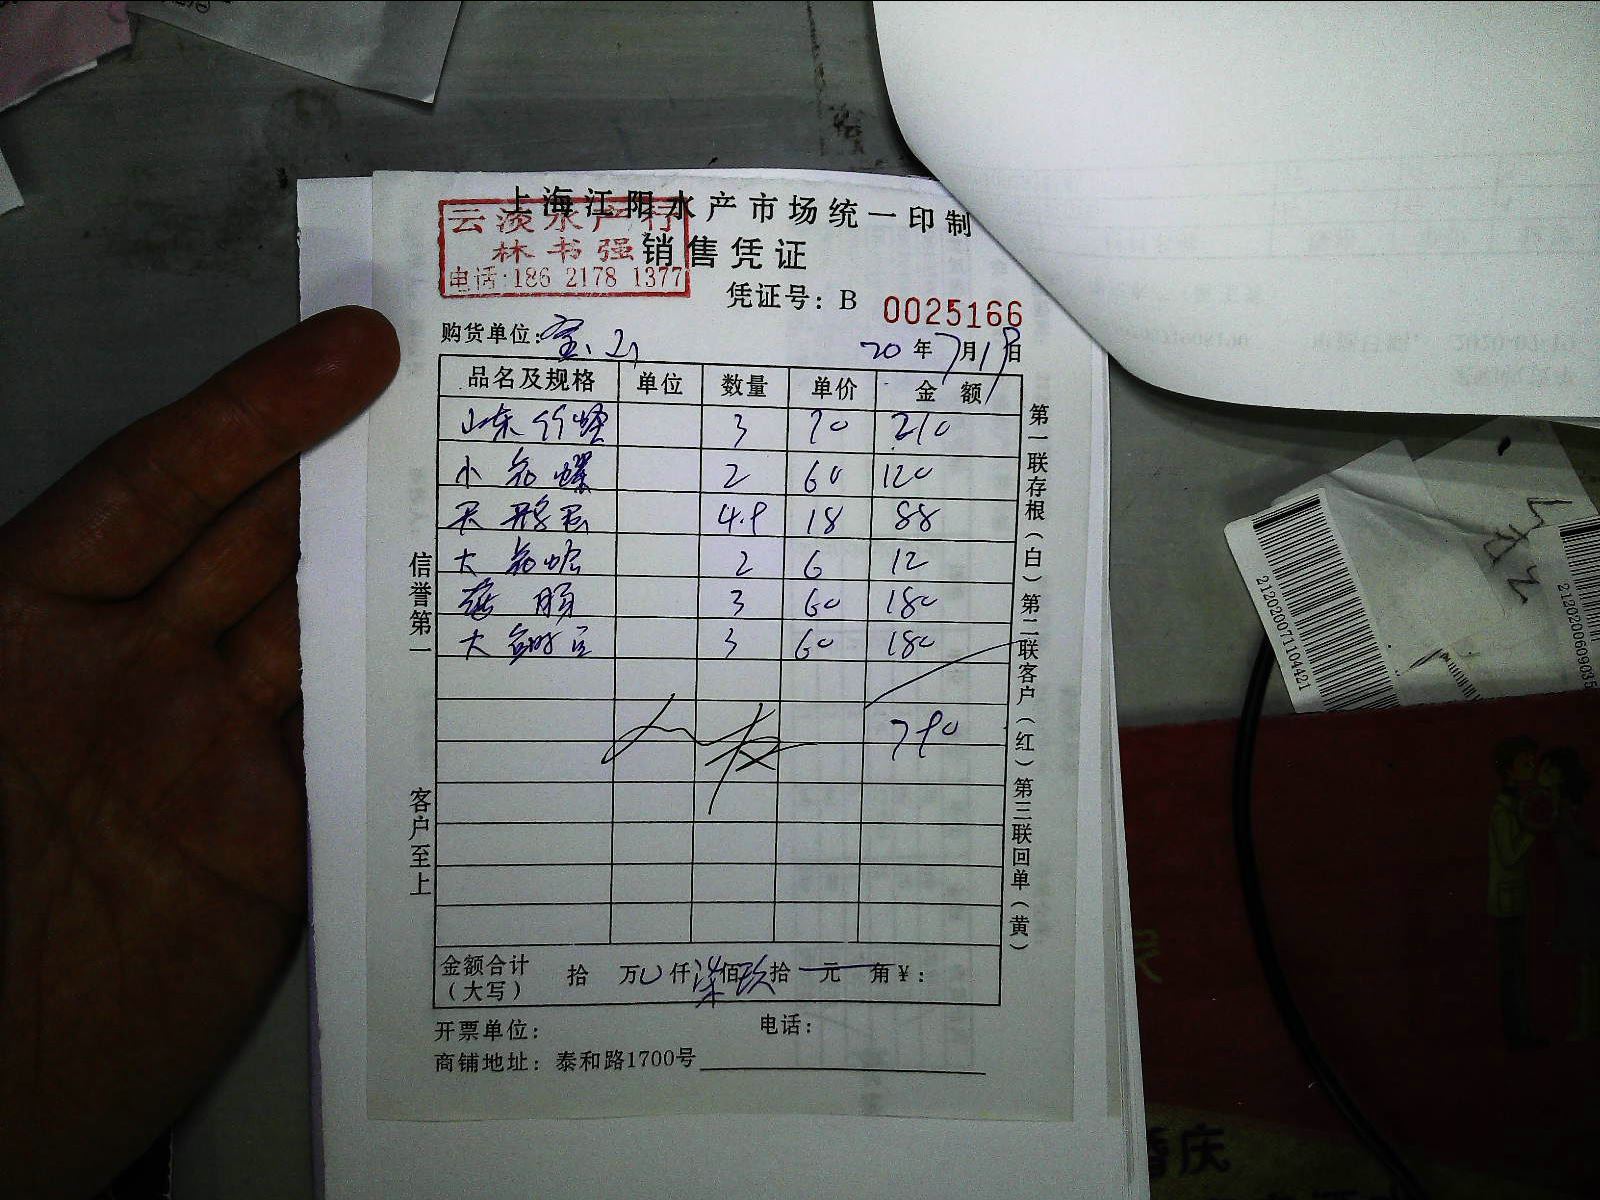 上海江阳水产市场统一印制
云淡水产行
林书强
电话:186 2178 1377
销售凭证
凭证号: B 0025166
购货单位: 宝山 20年7月19日
品名及规格 单位 数量 单价 金额
山东竹蛏 3 70 210
小花螺 2 60 120
4.9 18 88
大 2 6 12
3 60 180
大 3 60 180
790
金额合计(大写) 拾 万 仟 柒佰 玖拾 元 角 ¥:
开票单位: 电话:
商铺地址: 泰和路1700号
信誉第一
客户至上
第一联存根(白) 第二联客户(红) 第三联回单(黄)
212020071104421
2120200609035
婚庆